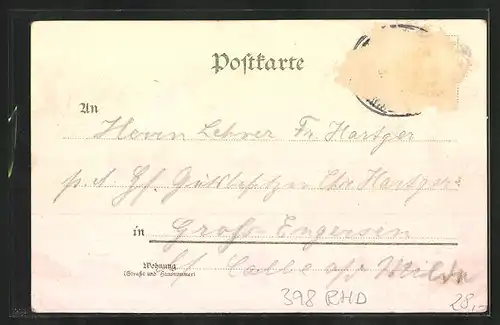 Postkarte
An
Herrn Lehrer Fr. Hartger
p. A. Gutsbesitzer Chr. Hartger
in Groß-Engersen
Calbe a/ Milde
Wohnung
(Straße und Hausnummer)
398 RHD
28,-